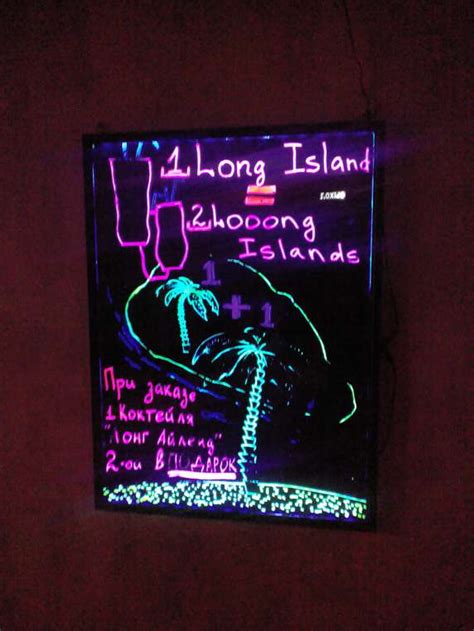 1 Long Island
=
2 Looong
Islands
1
+
1
При заказе
1 Коктейля
"Лонг Айленд"
2-ой в ПОДАРОК